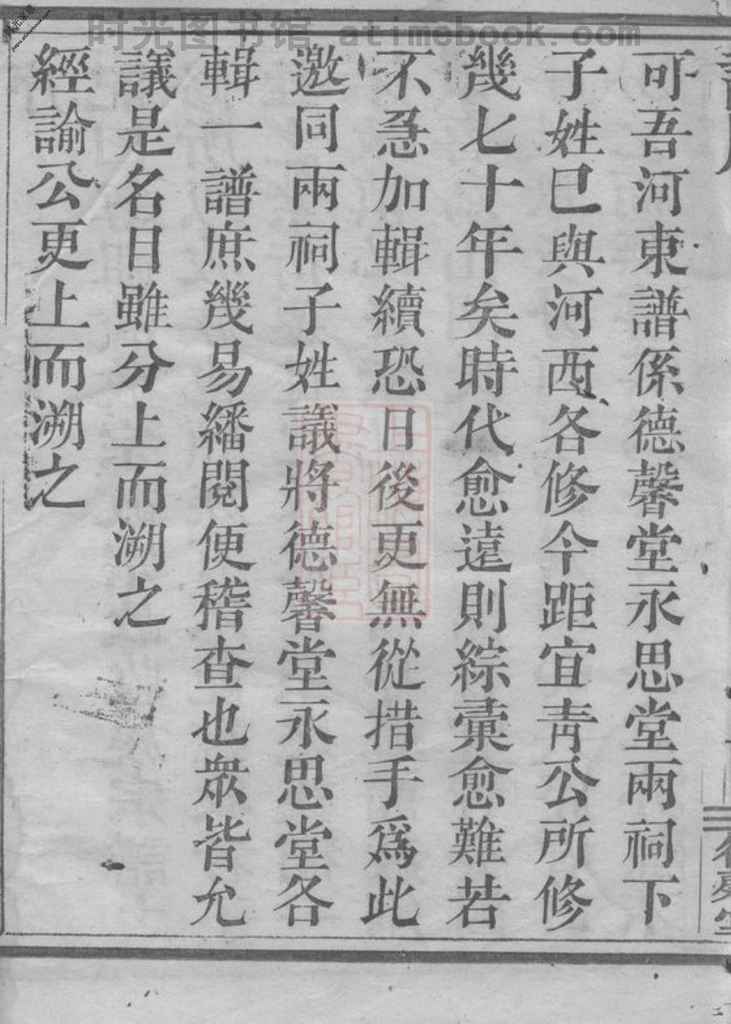 时光图书馆 atimebook.com
可吾河東譜係德馨堂永思堂兩祠下
子姓巳與河西各修今距宜青公所修
幾七十年矣時代愈遠則綜彙愈難若
不急加輯續恐日後更無從措手爲此
邀同兩祠子姓議將德馨堂永思堂各
輯一譜庶幾易繙閱便稽查也衆皆允
議是名目雖分上而溯之
經諭公更上而溯之